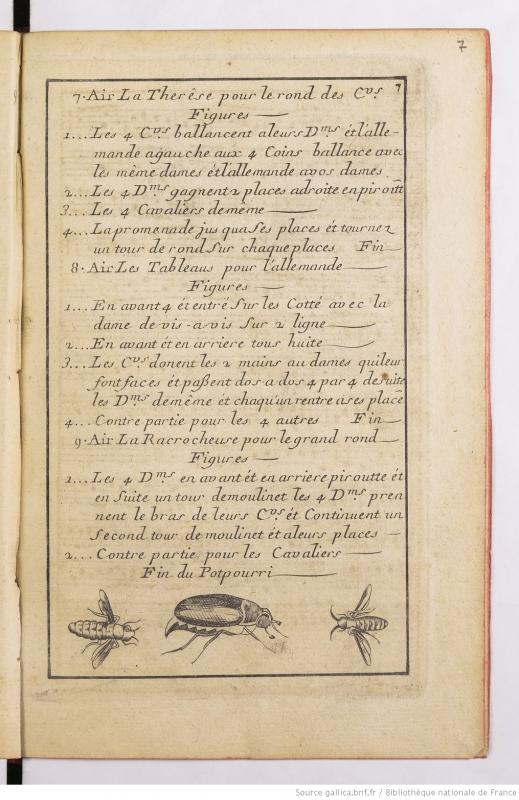 7
7
7. Air La Therêse pour le rond des Cvs.
Figures
1... Les 4 Cvs. ballancent a leurs Dms ét l'alle-
mande a gauche aux 4 Coins ballance avec
lès même dames ét l'allemande a vos dames
2... Les 4 Dms gagnent 2 places a droite en piroütt
3... Les 4 Cavaliers de même
4... La promenade jus qu'a ses places ét tournez
un tour de rond Sur chaque places Fin
8. Air Les Tableaus pour l'allemande
Figures
1... En avant 4 ét entré Sur les Cotté avec la
dame de vis-a-vis Sur 2 ligne
2... En avant ét en arriere tous huite
3... Les Cvs. donent les 2 mains au dames qui leur
font faces ét paßent dos a dos 4 par 4 de suite
les Dms de même ét chaqu'un rentre a ses place
4... Contre partie pour les 4 autres Fin
9. Air La Racrocheuse pour le grand rond
Figures
1... Les 4 Dms. en avant ét en arriere piroutte ét
en Suite un tour de moulinet les 4 Dms. pren
nent le bras de leurs Cvs. ét Continuent un
Second tour de moulinet ét a leurs places
2... Contre partie pour les Cavaliers
Fin du Potpourri
Source gallica.bnf.fr / Bibliothèque nationale de France